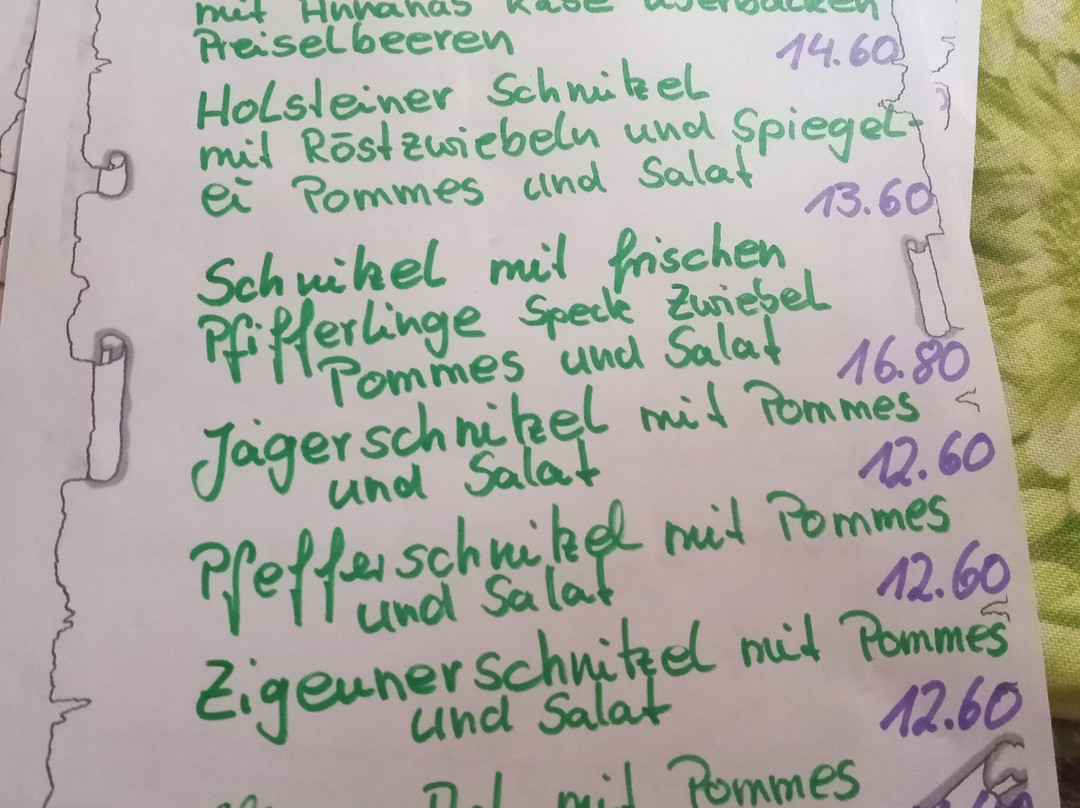 mit Annanas Käse überbacken
Preiselbeeren 14.60
Holsteiner Schnitzel
mit Röstzwiebeln und Spiegel-
ei Pommes und Salat 13.60
Schnitzel mit frischen
Pfifferlinge Speck Zwiebel
Pommes und Salat 16.80
Jägerschnitzel mit Pommes
und Salat 12.60
Pfefferschnitzel mit Pommes
und Salat 12.60
Zigeunerschnitzel mit Pommes
und Salat 12.60
mit Pommes